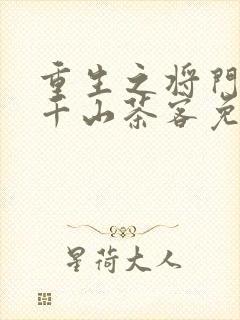 重生之将门
千山茶客免
星荷大人